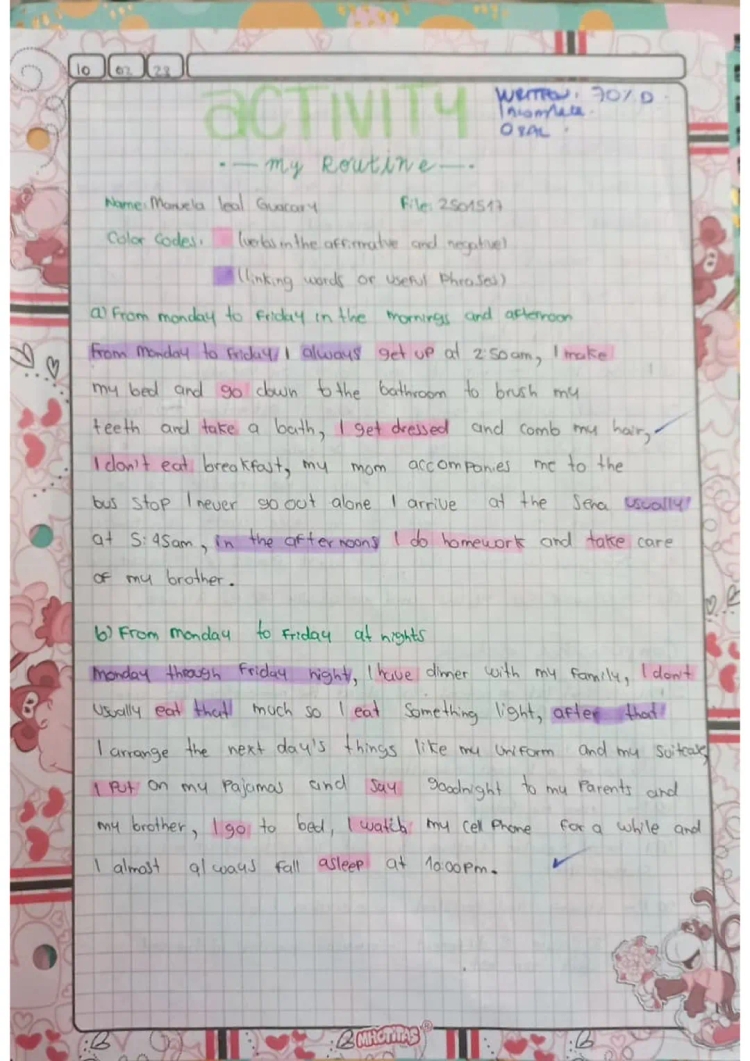 10 02 23
ACTIVITY
WRITTEN: 70% D.
Incomplete.
ORAL.
·—my Routine—·
Name: Manuela leal Guacary File: 2501517
Color Codes: (verbs in the affirmative and negative)
(linking words or useful Phrases)
a) From monday to Friday in the mornings and afternoon
From monday to Friday I always get up at 2:50am, I make
my bed and go down to the bathroom to brush my
teeth and take a bath, I get dressed and comb my hair,
I don't eat breakfast, my mom accompanies me to the
bus stop I never go out alone I arrive at the Sena usually
at 5:45am, in the afternoons I do homework and take care
of my brother.
b) From monday to Friday at nights
monday through Friday night, I have dinner with my family, I don't
usually eat that much so I eat something light, after that
I arrange the next day's things like my uniform and my suitcase,
I Put on my Pajamas and say goodnight to my Parents and
my brother, I go to bed, I watch my cell Phone for a while and
I almost always fall asleep at 10:00pm.
MHOTITAS